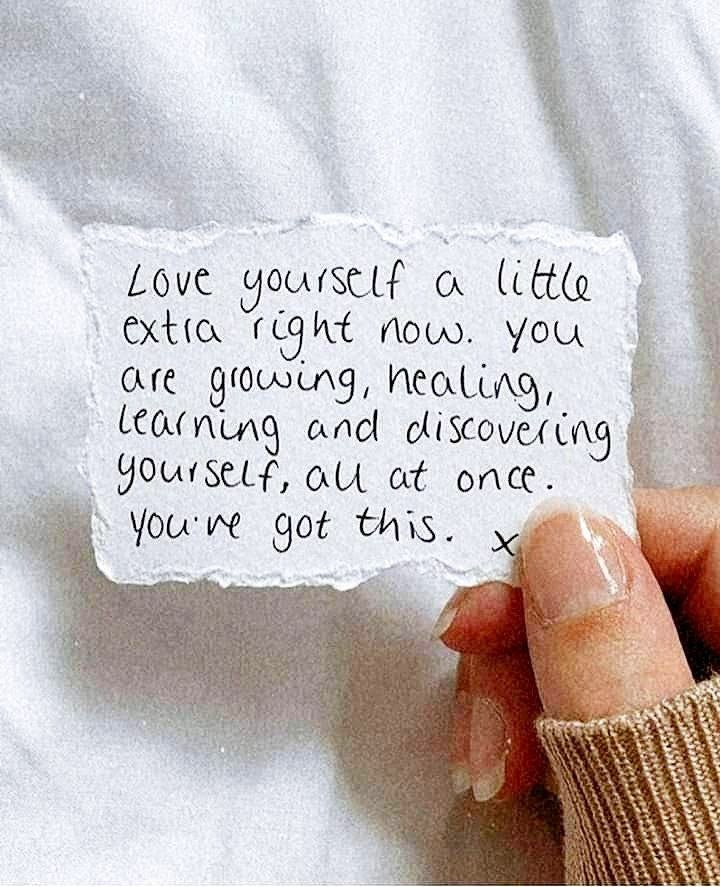 Love yourself a little
extra right now. you
are growing, healing,
learning and discovering
yourself, all at once.
you're got this. x